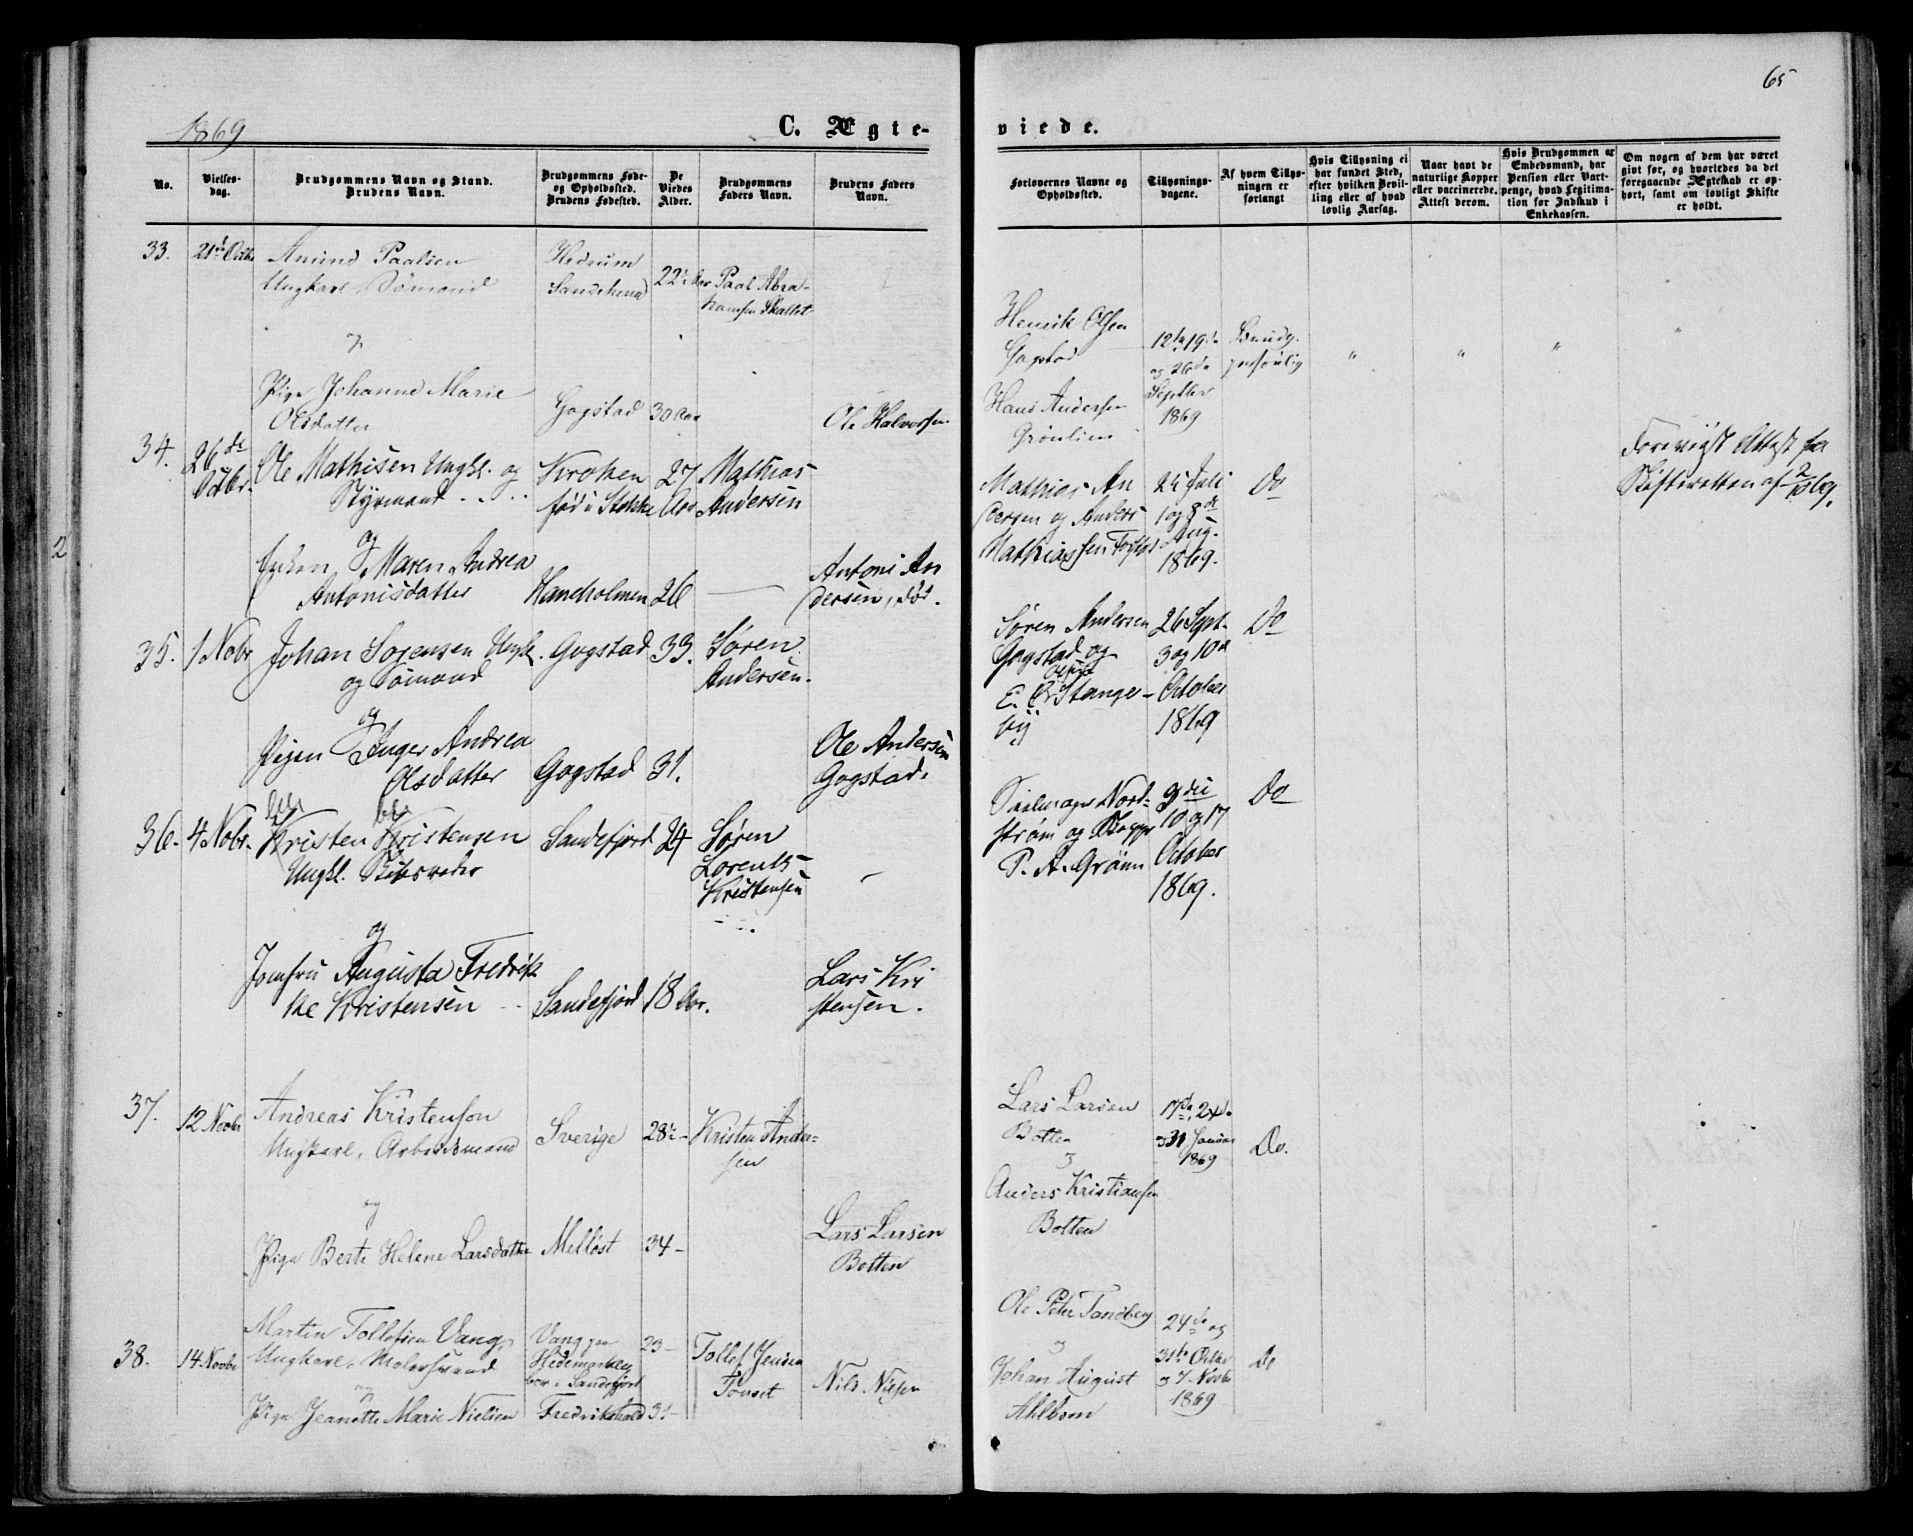 65
1869
C. Ægte-
viede.
No.
Vielses-
dag.
Brudgommens Navn og Stand.
Brudens Navn.
Brudgommens Føde-
og Opholdssted.
Brudens Fødested.
De
Viedes
Alder.
Brudgommens
Faders Navn.
Brudens Faders
Navn.
Forlovernes Navne og
Opholdssted.
Tillysnings-
dagene.
Af hvem Tillys-
ningen er
forlangt
Hvis Tillysning ei
har fundet Sted,
efter hvilken Bevil-
ling eller af hvad
lovlig Aarsag.
Naar havt de
naturlige Kopper
eller vaccinerede.
Attest derom.
Hvis Brudgommen er
Embedsmand, har
Pension eller Vart-
penge, hvad Legitima-
tion for Indskud i
Enkekassen.
Om nogen af dem har været
givt før, og hvorledes da det
foregaaende Ægteskab er op-
hørt, samt om lovligt Skifte
er holdt.
33.
21de Octbr
Anund Paalsen
Ungkarl, Sømand
og
Pige Johanne Marie
Olsdatter
Hedrum
Gogstad
30 Aar
Paal Abra-
hamsen
Ole Halvorsen
Henrik Olsen
Gogstad
Hans Andersen
12te 19de
og 26de
Septber
1869
Brudg.
personlig
" " " "
34.
26de
Octbr.
Ole Mathisen Ungkl. og
Styrmand
og
Enken Maren Andrea
Antonisdatter
Kroken
fød i Stokke
Haneholmen
27
Aar
26
Mathias
Andersen
Antoni An
dersen, død.
Mathias An
dersen og Anders
Mathiassen
25 Juli
1 og 8de
Aug.
1869.
Do
Forevigst Attest fra
Skifteretten af
35.
1 Nobr
Johan Sørensen Ungkl.
og Sømand
og
Pigen Inger Andrea
Olsdatter
Gogstad
Gogstad
33.
31.
Søren
Andersen.
Ole Andersen
Gogstad.
Søren Andersen
Gogstad og
E. Stange-
by
26 Sept.
3 og 10de
October
1869
Do
36.
4 Nobr.
Kristen Kristensen
Ungkl. Skibsreder
og
Jomfru Augusta Fredrik
ke Kristensen
Sandefjord
Sandefjord
24
18 Aar.
Søren
Lorents
Kristensen
Lars Kri
stensen.
Seilmager Nord-
strøm og Skipper
P. A. Grønn
3die
10 og 17
October
1869.
Do
37.
12 Novbr
Andreas Kristenson
Ungkarl, Arbeidsmand
og
Pige Berte Helene Larsdatter
Sverige
Melløst
28½
34
Kristen Ander-
sen
Lars Larsen
Botten
Lars Larsen
Botten
og
Anders Kristiansen
Botten
17de, 24de
og 31 Januar
1869
Do.
38.
14 Novbr
Martin Tollefsen Vang,
Ungkarl, Malersvend
og
Pige Jeanette Marie Nielsen
Vang paa
Hedemarken
bor i Sandefjord
Fredrikshald
23
31
Tollef Jensen
Nils Nilsen
Ole Peter Tandberg
og
Johan August
Ahlbom
24de og
31te Octbr
og 7 Novbr
1869
Do